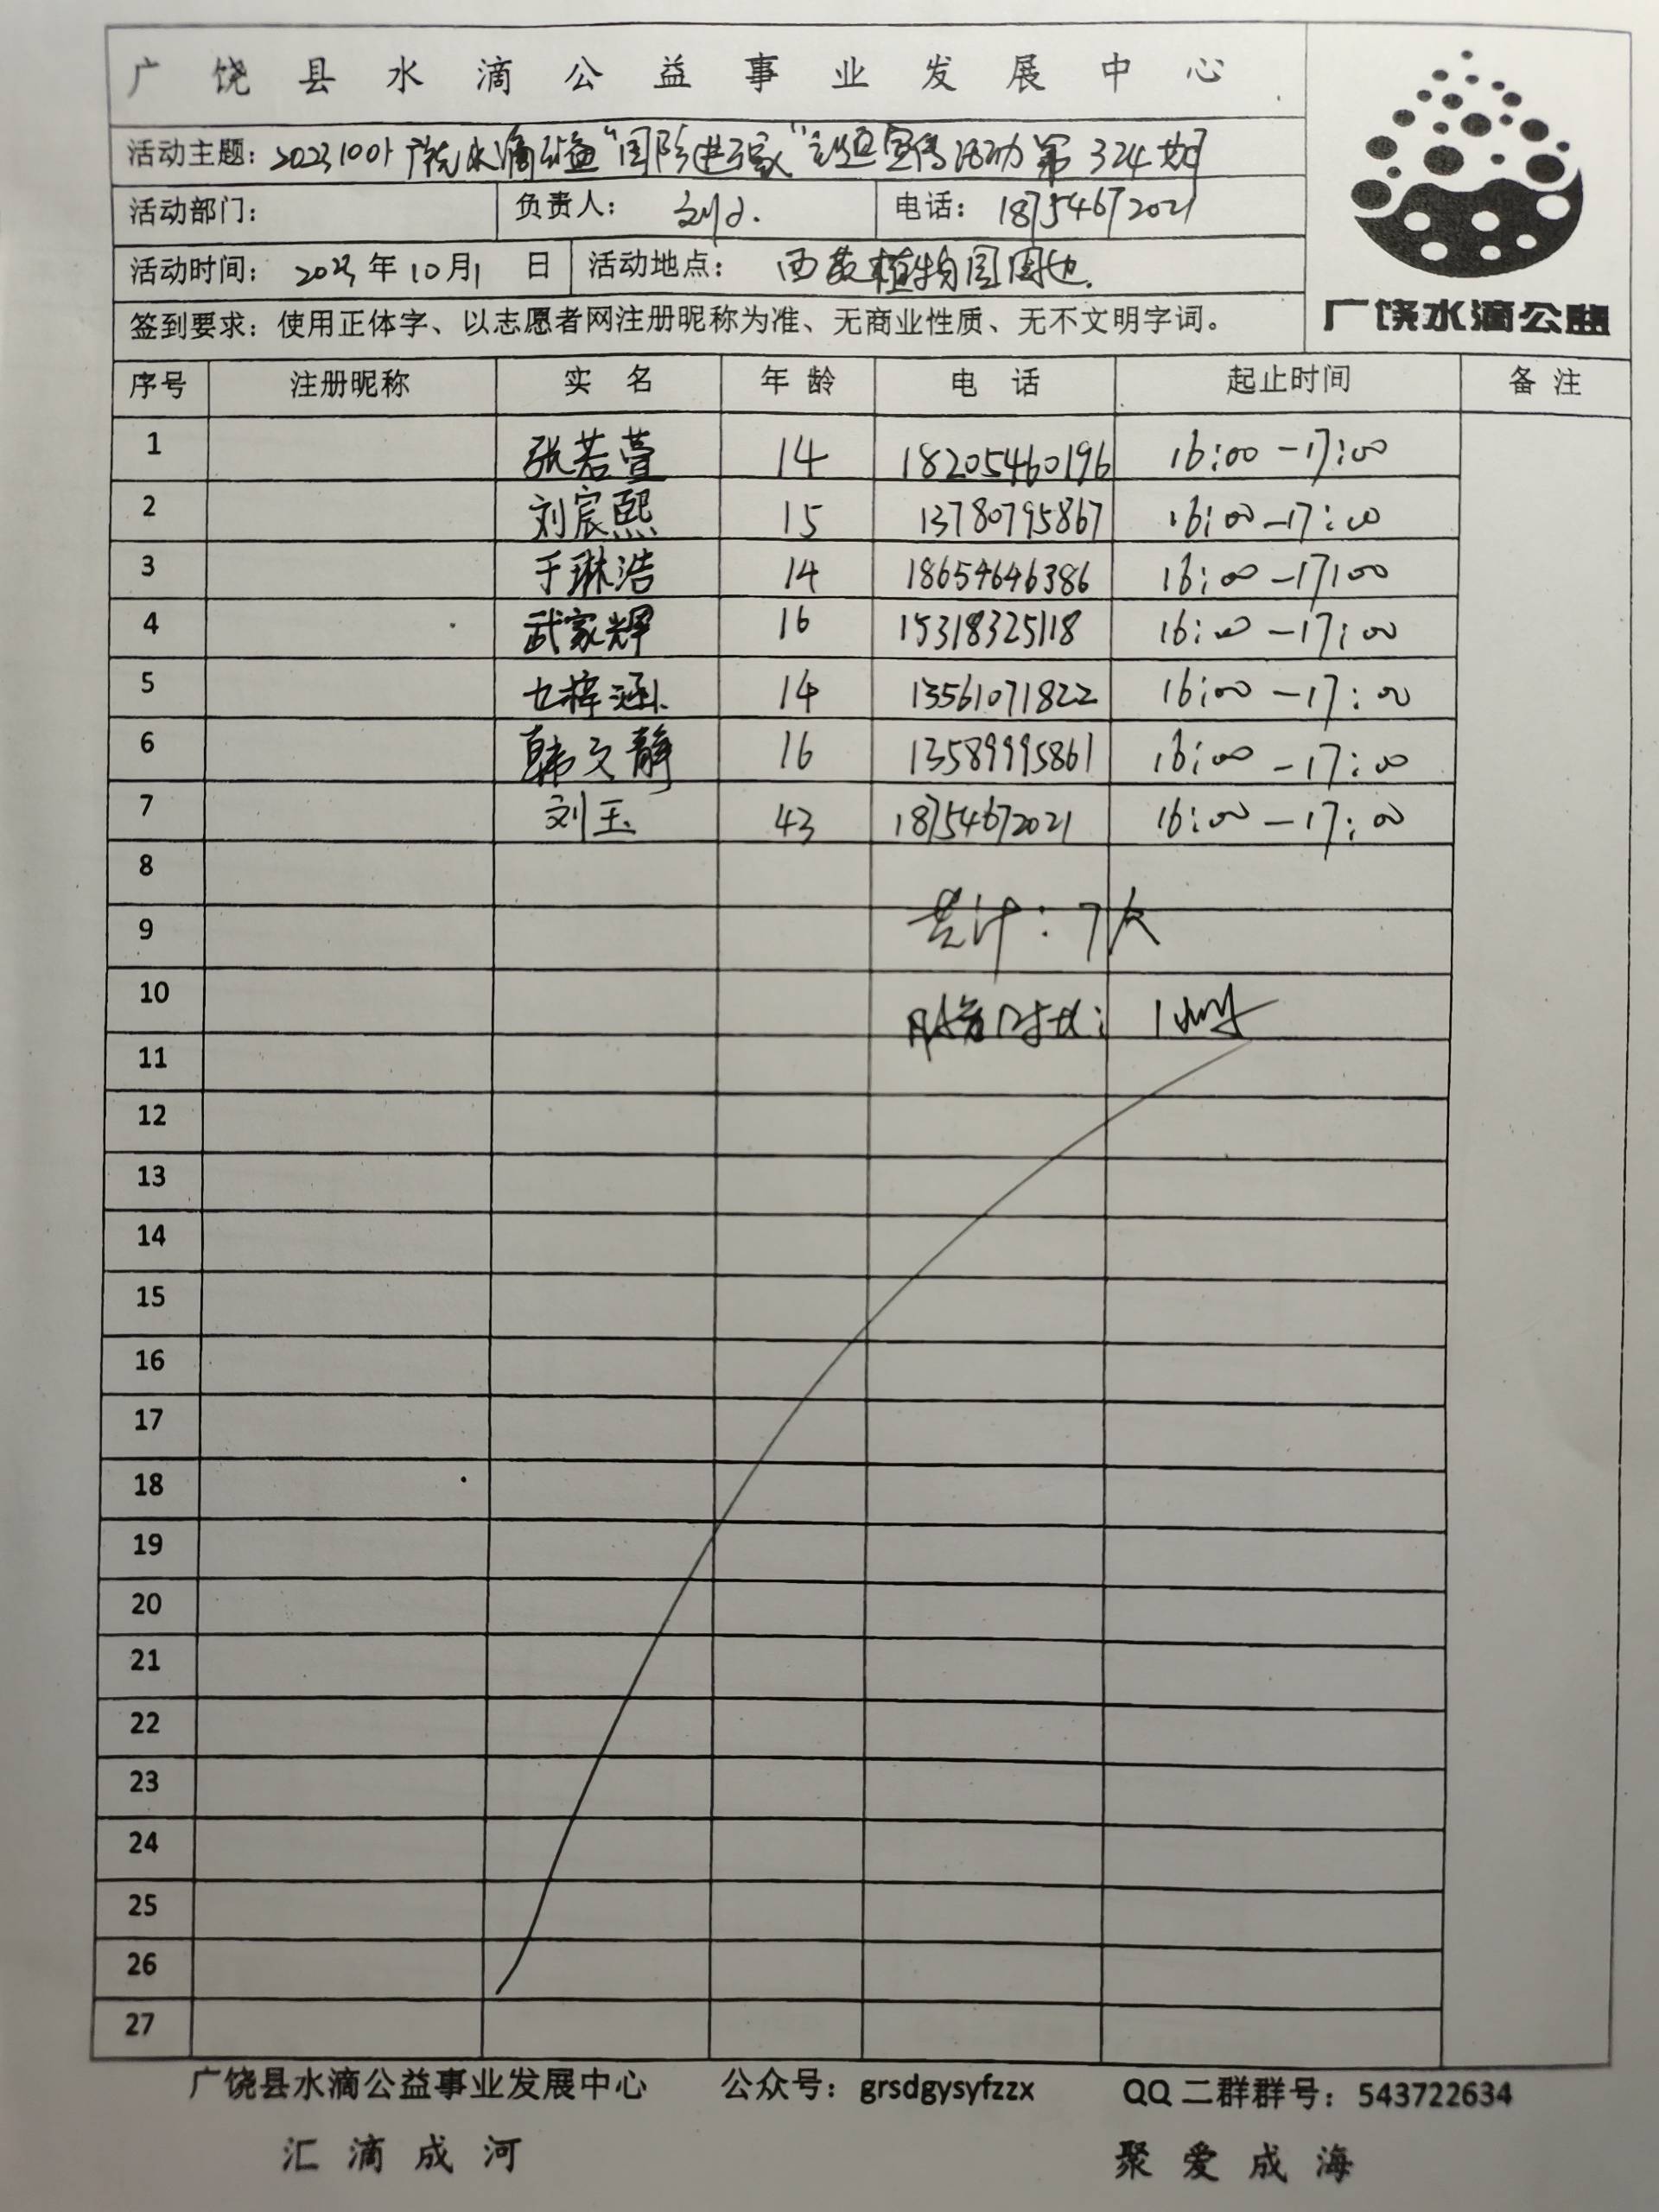 广饶县水滴公益事业发展中心
活动主题：20231001广饶水滴公益“国防进万家”主题宣传活动第324期
活动部门： 负责人：刘玉. 电话：18754672021
活动时间：2023年10月1日 活动地点：西苑植物园周边.
签到要求：使用正体字、以志愿者网注册昵称为准、无商业性质、无不文明字词。
广饶水滴公益
序号 注册昵称 实名 年龄 电话 起止时间 备注
1 张若萱 14 18205460196 16:00-17:00
2 刘宸熙 15 13780795867 16:00-17:00
3 于琳浩 14 18654646386 16:00-17:00
4 武家辉 16 15318325118 16:00-17:00
5 梓涵 14 13561071822 16:00-17:00
6 韩文静 16 13589995861 16:00-17:00
7 刘玉 43 18754672021 16:00-17:00
8
9 共计：7人
10 服务时长：1小时
11
12
13
14
15
16
17
18
19
20
21
22
23
24
25
26
27
广饶县水滴公益事业发展中心 公众号：grsdgysyfzzx QQ二群群号：543722634
汇滴成河 聚爱成海